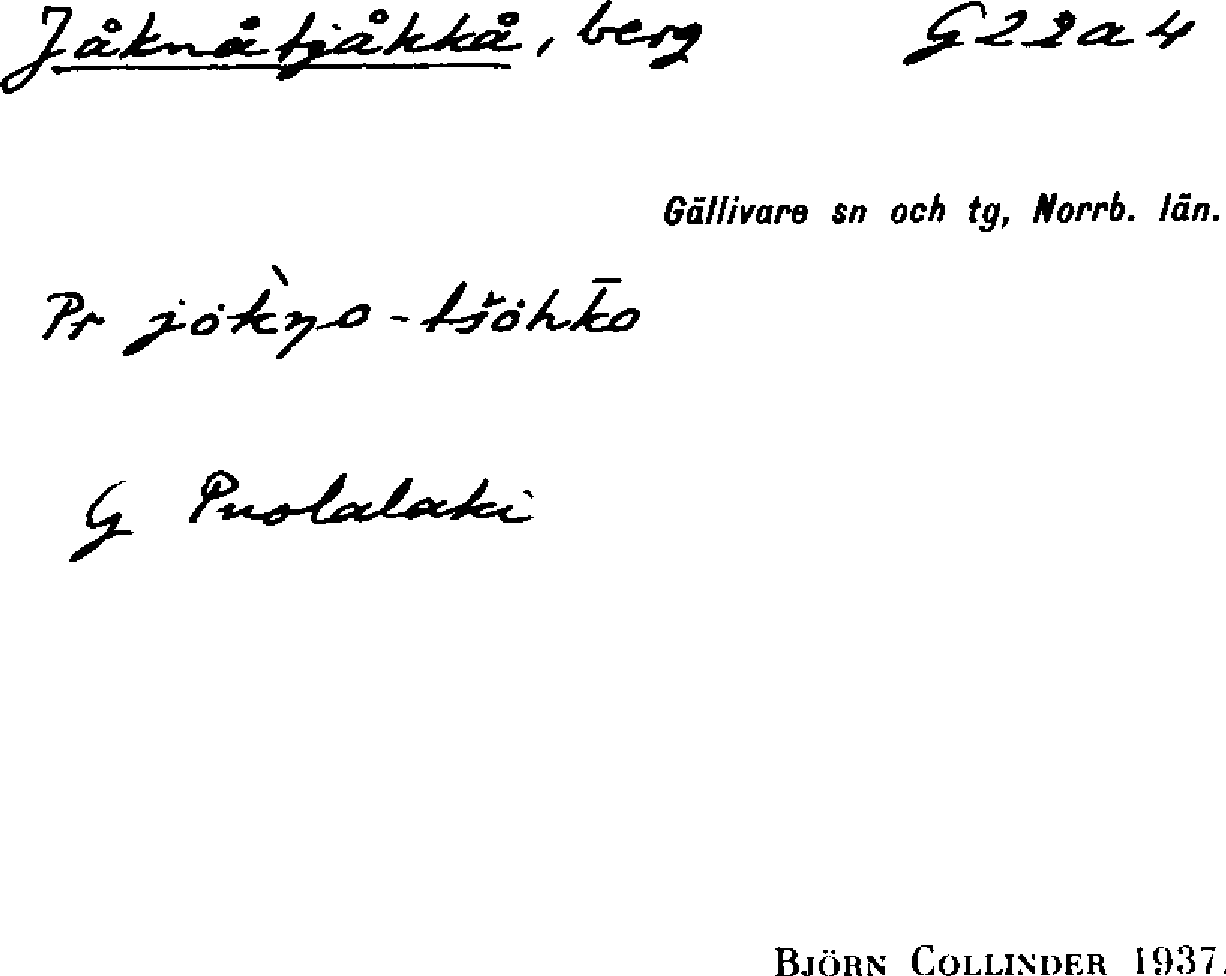 Jåknåtjåkkå, berg G22a4
Gällivare sn och tg, Norrb. län.
Pr jȯk̀ŋo-tšȯhk̄o
G Puolalaki
BJÖRN COLLINDER 1937.